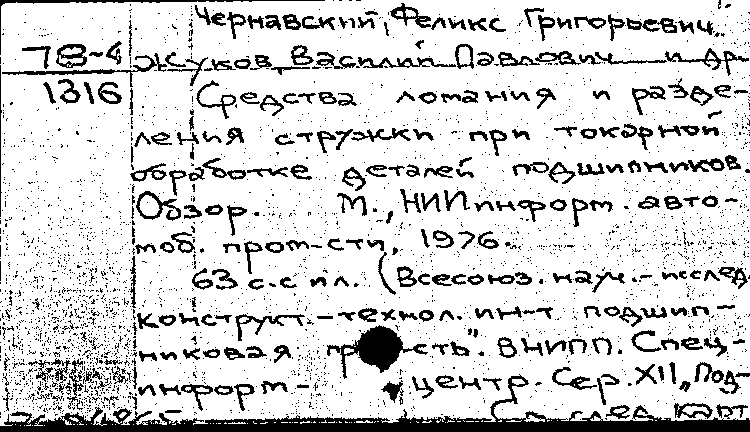 Чернавский, Феликс Григорьевич,
78-4 Жуков, Василий Павлович и др.
1316 Средства ломания и разде-
ления стружки при токарной
обработке деталей подшипников.
Обзор. М., НИИинформ. авто-
моб. пром-сти, 1976.
63 с. с ил. (Всесоюз. науч.-исслед.
конструкт.-технол. ин-т подшип-
никовая пр сть". ВНИПП. Спец.-
информ- центр. Сер. XII, „Под-
См. след. карт